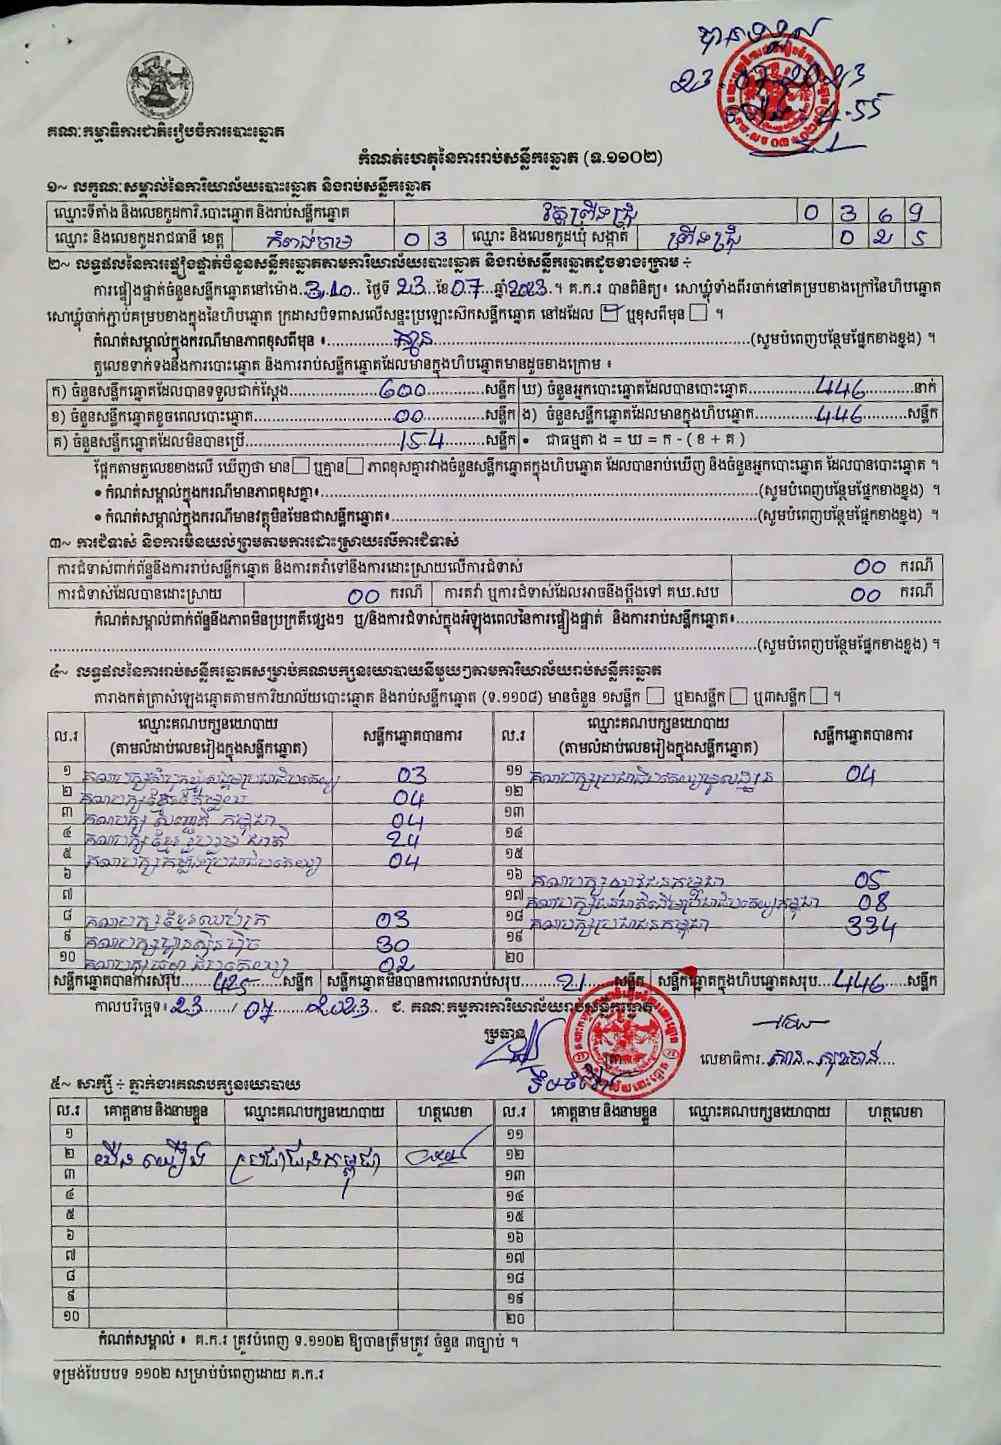 បានទទួល
23 07 2023
4-55
គណៈកម្មាធិការជាតិរៀបចំការបោះឆ្នោត
កំណត់ហេតុនៃការរាប់សន្លឹកឆ្នោត (ទ.១១០២)
១~ លក្ខណៈសម្គាល់នៃការិយាល័យបោះឆ្នោត និងរាប់សន្លឹកឆ្នោត
ឈ្មោះទីតាំង និងលេខកូដការិ.បោះឆ្នោត និងរាប់សន្លឹកឆ្នោត វត្តព្រីងជ្រុំ 0 3 6 9
ឈ្មោះ និងលេខកូដរាជធានី ខេត្ត កំពង់ចាម 0 3 ឈ្មោះ និងលេខកូដឃុំ សង្កាត់ ព្រីងជ្រុំ 0 2 5
២~ លទ្ធផលនៃការផ្ទៀងផ្ទាត់ចំនួនសន្លឹកឆ្នោតតាមការិយាល័យបោះឆ្នោត និងរាប់សន្លឹកឆ្នោតដូចខាងក្រោម ÷
ការផ្ទៀងផ្ទាត់ចំនួនសន្លឹកឆ្នោតនៅម៉ោង 3.10 ថ្ងៃទី 23 ខែ 07 ឆ្នាំ 2023 ។ គ.ក.រ បានពិនិត្យ៖ សោឃ្លុំទាំងពីរចាក់នៅគម្របខាងក្រៅនៃហិបឆ្នោត
សោឃ្លុំចាក់ភ្ជាប់គម្របខាងក្នុងនៃហិបឆ្នោត ក្រដាសបិទពាសលើសន្ទះប្រឡោះស៊កសន្លឹកឆ្នោត នៅដដែល ☑ ឬខុសពីមុន ☐ ។
កំណត់សម្គាល់ក្នុងករណីមានភាពខុសពីមុន ៖ គ្មាន (សូមបំពេញបន្ថែមផ្នែកខាងខ្នង) ។
តួលេខទាក់ទងនឹងការបោះឆ្នោត និងការរាប់សន្លឹកឆ្នោតដែលមានក្នុងហិបឆ្នោតមានដូចខាងក្រោម ៖
ក) ចំនួនសន្លឹកឆ្នោតដែលបានទទួលជាក់ស្តែង 600 សន្លឹក ឃ) ចំនួនអ្នកបោះឆ្នោតដែលបានបោះឆ្នោត 446 នាក់
ខ) ចំនួនសន្លឹកឆ្នោតខូចពេលបោះឆ្នោត 00 សន្លឹក ង) ចំនួនសន្លឹកឆ្នោតដែលមានក្នុងហិបឆ្នោត 446 សន្លឹក
គ) ចំនួនសន្លឹកឆ្នោតដែលមិនបានប្រើ 154 សន្លឹក • ជាធម្មតា ង = ឃ = ក - ( ខ + គ )
ផ្អែកតាមតួលេខខាងលើ ឃើញថា មាន ☐ ឬគ្មាន ☐ ភាពខុសគ្នារវាងចំនួនសន្លឹកឆ្នោតក្នុងហិបឆ្នោត ដែលបានរាប់ឃើញ និងចំនួនអ្នកបោះឆ្នោត ដែលបានបោះឆ្នោត ។
• កំណត់សម្គាល់ក្នុងករណីមានភាពខុសគ្នា៖ (សូមបំពេញបន្ថែមផ្នែកខាងខ្នង) ។
• កំណត់សម្គាល់ក្នុងករណីមានវត្ថុមិនមែនជាសន្លឹកឆ្នោត៖ (សូមបំពេញបន្ថែមផ្នែកខាងខ្នង) ។
៣~ ការជំទាស់ និងការមិនយល់ព្រមតាមការដោះស្រាយលើការជំទាស់
ការជំទាស់ពាក់ព័ន្ធនឹងការរាប់សន្លឹកឆ្នោត និងការតវ៉ាទៅនឹងការដោះស្រាយលើការជំទាស់ 00 ករណី
ការជំទាស់ដែលបានដោះស្រាយ 00 ករណី ការតវ៉ា ឬការជំទាស់ដែលអាចនឹងប្តឹងទៅ គឃ.សប 00 ករណី
កំណត់សម្គាល់ពាក់ព័ន្ធនឹងភាពមិនប្រក្រតីផ្សេងៗ ឬ/និងការជំទាស់ក្នុងអំឡុងពេលនៃការផ្ទៀងផ្ទាត់ និងការរាប់សន្លឹកឆ្នោត៖
(សូមបំពេញបន្ថែមផ្នែកខាងខ្នង) ។
៤~ លទ្ធផលនៃការរាប់សន្លឹកឆ្នោតសម្រាប់គណបក្សនយោបាយនីមួយៗតាមការិយាល័យរាប់សន្លឹកឆ្នោត
តារាងកត់ត្រាសំឡេងឆ្នោតតាមការិយាល័យបោះឆ្នោត និងរាប់សន្លឹកឆ្នោត (ទ.១១០៨) មានចំនួន ១សន្លឹក ☐ ឬ២សន្លឹក ☐ ឬ៣សន្លឹក ☐ ។
ល.រ ឈ្មោះគណបក្សនយោបាយ (តាមលំដាប់លេខរៀងក្នុងសន្លឹកឆ្នោត) សន្លឹកឆ្នោតបានការ ល.រ ឈ្មោះគណបក្សនយោបាយ (តាមលំដាប់លេខរៀងក្នុងសន្លឹកឆ្នោត) សន្លឹកឆ្នោតបានការ
១ គណបក្សសំបុកឃ្មុំសង្គមប្រជាធិបតេយ្យ 03 ១១ គណបក្សប្រជាធិបតេយ្យមូលដ្ឋាន 04
២ គណបក្សខ្មែររួបរួម 04 ១២
៣ គណបក្ស សញ្ជាតិ កម្ពុជា 04 ១៣
៤ គណបក្សខ្មែររួបរួមជាតិ 24 ១៤
៥ គណបក្សកម្លាំងប្រជាធិបតេយ្យ 04 ១៥
៦ ១៦ គណបក្សយុវជនកម្ពុជា 05
៧ ១៧ គណបក្សជនជាតិដើមប្រជាធិបតេយ្យកម្ពុជា 08
៨ គណបក្សខ្មែរឈប់ក្រ 03 ១៨ គណបក្សប្រជាជនកម្ពុជា 334
៩ គណបក្សហ្វ៊ុនស៊ិនប៉ិច 30 ១៩
១០ គណបក្សធម្មាធិបតេយ្យ 02 ២០
សន្លឹកឆ្នោតបានការសរុប 425 សន្លឹក សន្លឹកឆ្នោតមិនបានការពេលរាប់សរុប 21 សន្លឹក សន្លឹកឆ្នោតក្នុងហិបឆ្នោតសរុប 446 សន្លឹក
កាលបរិច្ឆេទ៖ 23 / 07 2023 ជ. គណៈកម្មការការិយាល័យរាប់សន្លឹកឆ្នោត
ប្រធាន
លេខាធិការ
៥~ សាក្សី ÷ ភ្នាក់ងារគណបក្សនយោបាយ
ល.រ គោត្តនាម និងនាមខ្លួន ឈ្មោះគណបក្សនយោបាយ ហត្ថលេខា ល.រ គោត្តនាម និងនាមខ្លួន ឈ្មោះគណបក្សនយោបាយ ហត្ថលេខា
១ ១១
២ យ៉ឺន យឿង ប្រជាជនកម្ពុជា ១២
៣ ១៣
៤ ១៤
៥ ១៥
៦ ១៦
៧ ១៧
៨ ១៨
៩ ១៩
១០ ២០
កំណត់សម្គាល់ ៖ គ.ក.រ ត្រូវបំពេញ ទ.១១០២ ឱ្យបានត្រឹមត្រូវ ចំនួន ៣ច្បាប់ ។
ទម្រង់បែបបទ ១១០២ សម្រាប់បំពេញដោយ គ.ក.រ